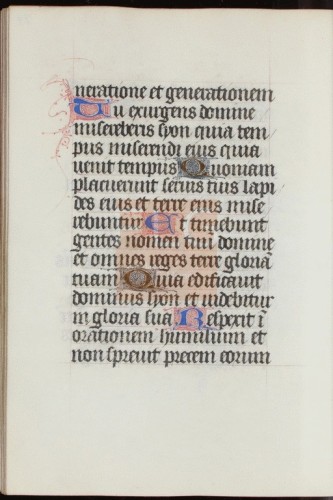 neratione et generationem
Tu exurgens domine
misereberis syon quia tem
pus miserendi eius quia
uenit tempus Quoniam
placuerunt seruis tuis lapi
des eius et terre eius mise
rebuntur Et timebunt
gentes nomen tuu domine
et omnes reges terre gloriā
tuam Quia edificauit
dominus syon et uidebitur
in gloria sua Respexit ī
orationem humilium et
non spreuit precem eorum